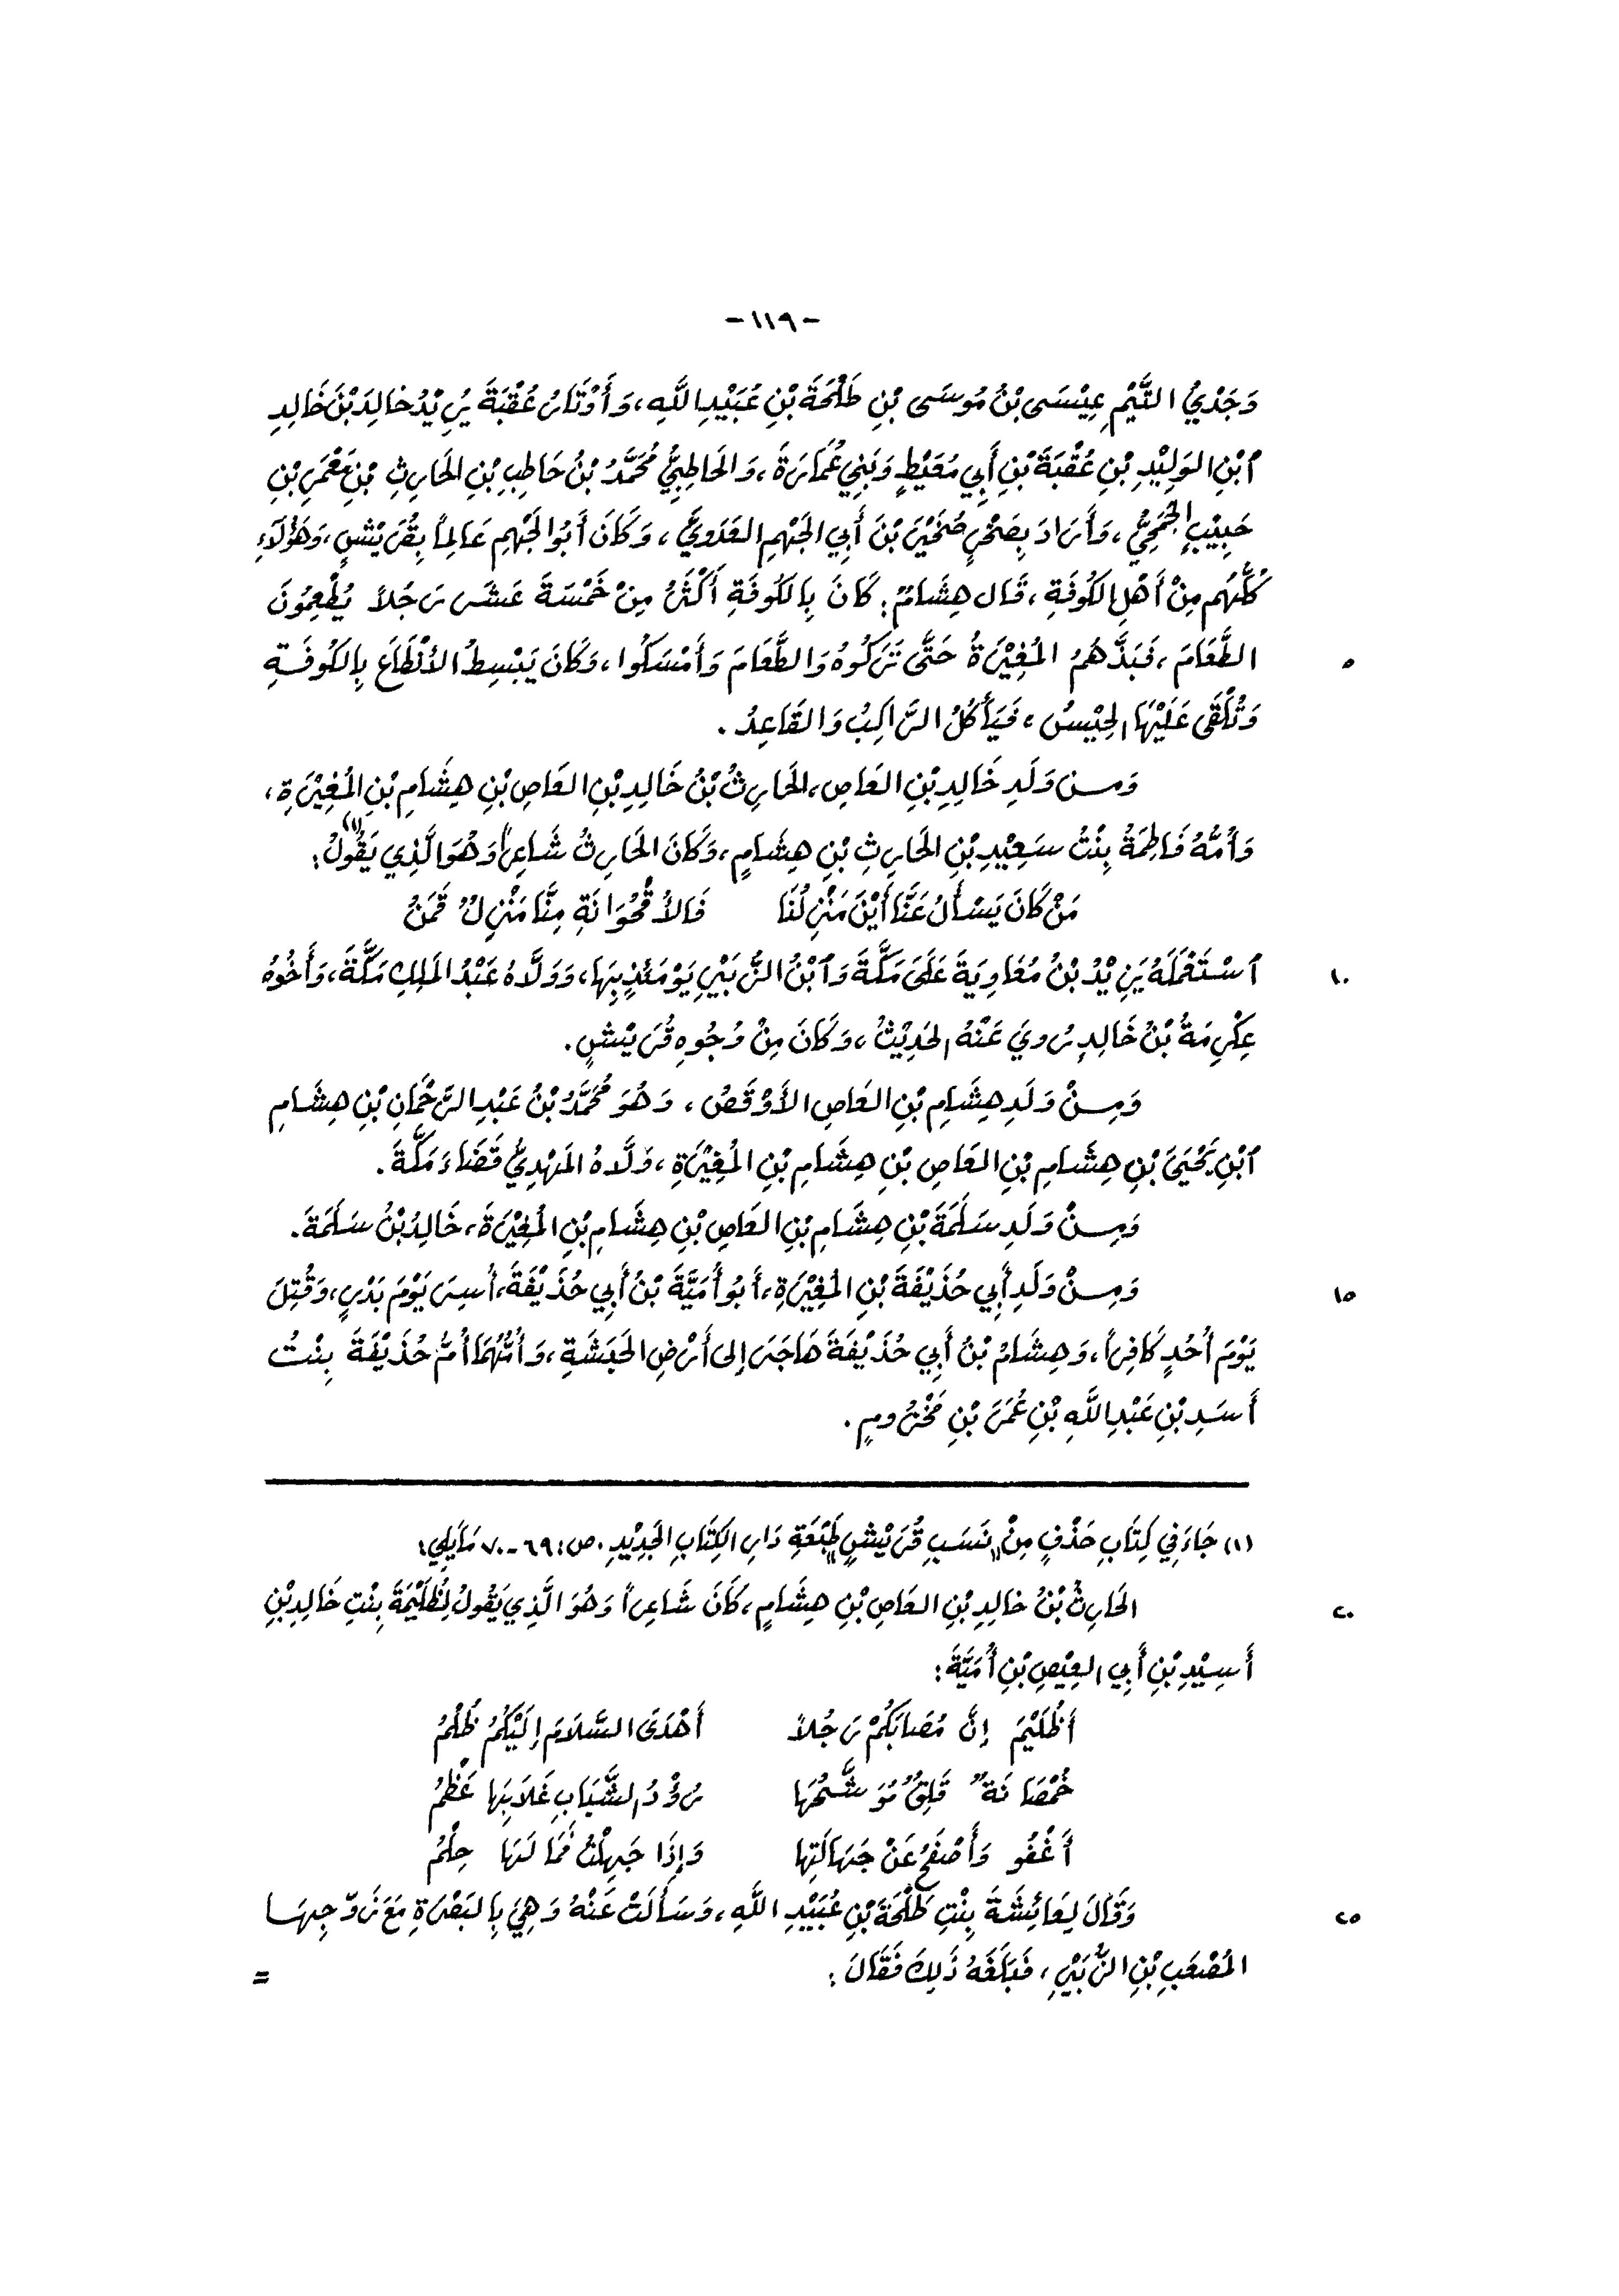 -١١٩-
وَجَدْيُ التَّيْمِ عِيْسَى بْنُ مُوسَى بْنِ طَلْحَةَ بْنِ عُبَيْدِ اللَّهِ، وَأَوْتَارُ عُقْبَةَ يُرِيْدُ خَالِدَ بْنَ خَالِدِ
ٱبْنِ الوَلِيْدِ بْنِ عُقْبَةَ بْنِ أَبِي مُعَيْطٍ وَبَنِي عُمَارَةَ، وَالحَاطِبِيُّ مُحَمَّدُ بْنُ حَاطِبِ بْنِ الحَارِثِ بْنِ مَعْمَرِ بْنِ
حَبِيْبٍ الجُمَحِيُّ، وَأَرَادَ بِصَخْرٍ صُخَيْرَ بْنَ أَبِي الجَهْمِ العَدَوِيَّ، وَكَانَ أَبُو الجَهْمِ عَالِماً بِقُرَيْشٍ، وَهَؤُلَاءِ
كُلُّهُم مِنْ أَهْلِ الكُوفَةِ، قَال هِشَامٌ: كَانَ بِالكُوفَةِ أَكْثَرُ مِنْ خَمْسَةَ عَشَرَ رَجُلاً يُطْعِمُونَ
الطَّعَامَ، فَبَذَّهُمُ المُغِيْرَةُ حَتَّى تَرَكُوهُ وَالطَّعَامَ وَأَمْسَكُوا، وَكَانَ يَبْسِطُ الأَنْطَاعَ بِالكُوفَةِ ٥
وَتُلْقَى عَلَيْهَا الحَيْسُ، فَيَأْكُلُ الرَّاكِبُ وَالقَاعِدُ.
وَمِن وَلَدِ خَالِدِ بْنِ العَاصِ، الحَارِثُ بْنُ خَالِدِ بْنِ العَاصِ بْنِ هِشَامِ بْنِ المُغِيْرَةِ،
وَأُمُّهُ فَاطِمَةُ بِنْتُ سَعِيْدِ بْنِ الحَارِثِ بْنِ هِشَامٍ، وَكَانَ الحَارِثُ شَاعِراً وَهُوَ الَّذِي يَقُولُ(١):
مَنْ كَانَ يَسْأَلُ عَنَّا أَيْنَ مَنْزِلُنَا فَالأُقْحُوَانَةِ مِنَّا مَنْزِلٌ قَمَنُ
ٱسْتَعْمَلَهُ يَزِيْدُ بْنُ مُعَاوِيَةَ عَلَى مَكَّةَ وَٱبْنُ الزُّبَيْرِ يَوْمَئِذٍ بِهَا، وَوَلَّاهُ عَبْدُ المَلِكِ مَكَّةَ، وَأَخُوهُ ١٠
عِكْرِمَةُ بْنُ خَالِدٍ رُوِيَ عَنْهُ الحَدِيْثُ، وَكَانَ مِنْ وُجُوهِ قُرَيْشٍ.
وَمِنْ وَلَدِ هِشَامِ بْنِ العَاصِ الأَوْقَصُ، وَهُوَ مُحَمَّدُ بْنُ عَبْدِ الرَّحْمَانِ بْنِ هِشَامِ
ٱبْنِ يَحْيَى بْنِ هِشَامِ بْنِ العَاصِ بْنِ هِشَامِ بْنِ المُغِيْرَةِ، وَلَّاهُ المَهْدِيُّ قَضَاءَ مَكَّةَ.
وَمِنْ وَلَدِ سَلَمَةَ بْنِ هِشَامِ بْنِ العَاصِ بْنِ هِشَامِ بْنِ المُغِيْرَةَ، خَالِدُ بْنُ سَلَمَةَ.
وَمِنْ وَلَدِ أَبِي حُذَيْفَةَ بْنِ المُغِيْرَةِ، أَبُو أُمَيَّةَ بْنُ أَبِي حُذَيْفَةَ، أُسِرَ يَوْمَ بَدْرٍ، وَقُتِلَ ١٥
يَوْمَ أُحُدٍ كَافِراً، وَهِشَامُ بْنُ أَبِي حُذَيْفَةَ هَاجَرَ إِلى أَرْضِ الحَبَشَةِ، وَأُمُّهُمَا أُمُّ حُذَيْفَةَ بِنْتُ
أَسَدِ بْنِ عَبْدِ اللَّهِ بْنِ عُمَرَ بْنِ مَخْزُومٍ.
(١) جَاءَ فِي كِتَابِ حَذْفٍ مِنْ "نَسَبِ قُرَيْشٍ" طَبْعَةِ دَارِ الكِتَابِ الجَدِيْدِ. ص: ٦٩-٧٠ مَايَلِي:
الحَارِثُ بْنُ خَالِدِ بْنِ العَاصِ بْنِ هِشَامٍ، كَانَ شَاعِراً وَهُوَ الَّذِي يَقُولُ لِظُلَيْمَةَ بِنْتِ خَالِدِ بْنِ ٢٠
أَسِيْدِ بْنِ أَبِي العِيْصِ بْنِ أُمَيَّةَ:
أَظُلَيْمَ إِنَّ مُصَابَكُمْ رَجُلاً أَهْدَى السَّلَامَ إِلَيْكُمُ ظُلْمُ
خُمْصَانَةٌ قَلِقٌ مُوَشَّحُهَا رُؤْدُ الشَّبَابِ غَلَا بِهَا عَظْمُ
أَغْفُو وَأَصْفَحُ عَنْ جَهَالَتِها وَإِذَا جَهِلْتُ فَمَا لَهَا حِلْمُ
وَقَالَ لِعَائِشَةَ بِنْتِ طَلْحَةَ بْنِ عُبَيْدِ اللَّهِ، وَسَأَلَتْ عَنْهُ وَهِيَ بِالبَصْرَةِ مَعَ زَوْجِهَا ٢٥
المُصْعَبِ بْنِ الزُّبَيْرِ، فَبَلَغَهُ ذَلِكَ فَقَالَ: =